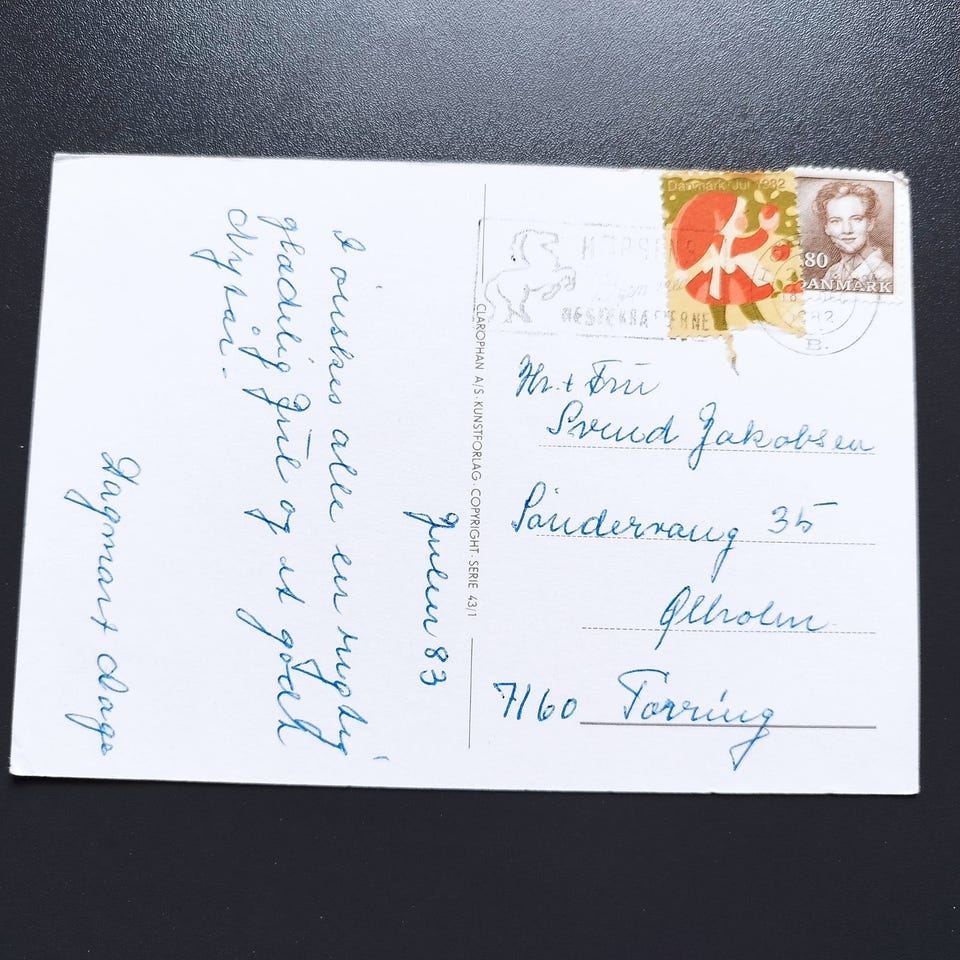 Julen 83
I önskes alle en rigtig
glædelig Jul og et godt
Nytår.
Dagmart Aage
CLAROPHAN A/S · KUNSTFORLAG · COPYRIGHT · SERIE 43/1
HORSENS
HESTEKRÆFTERNE
Danmark Jul 1982
80
DANMARK
1982
B.
Hr. + Fru
Svend Jakobsen
Söndervang 35
Ølholm
7160 Törring